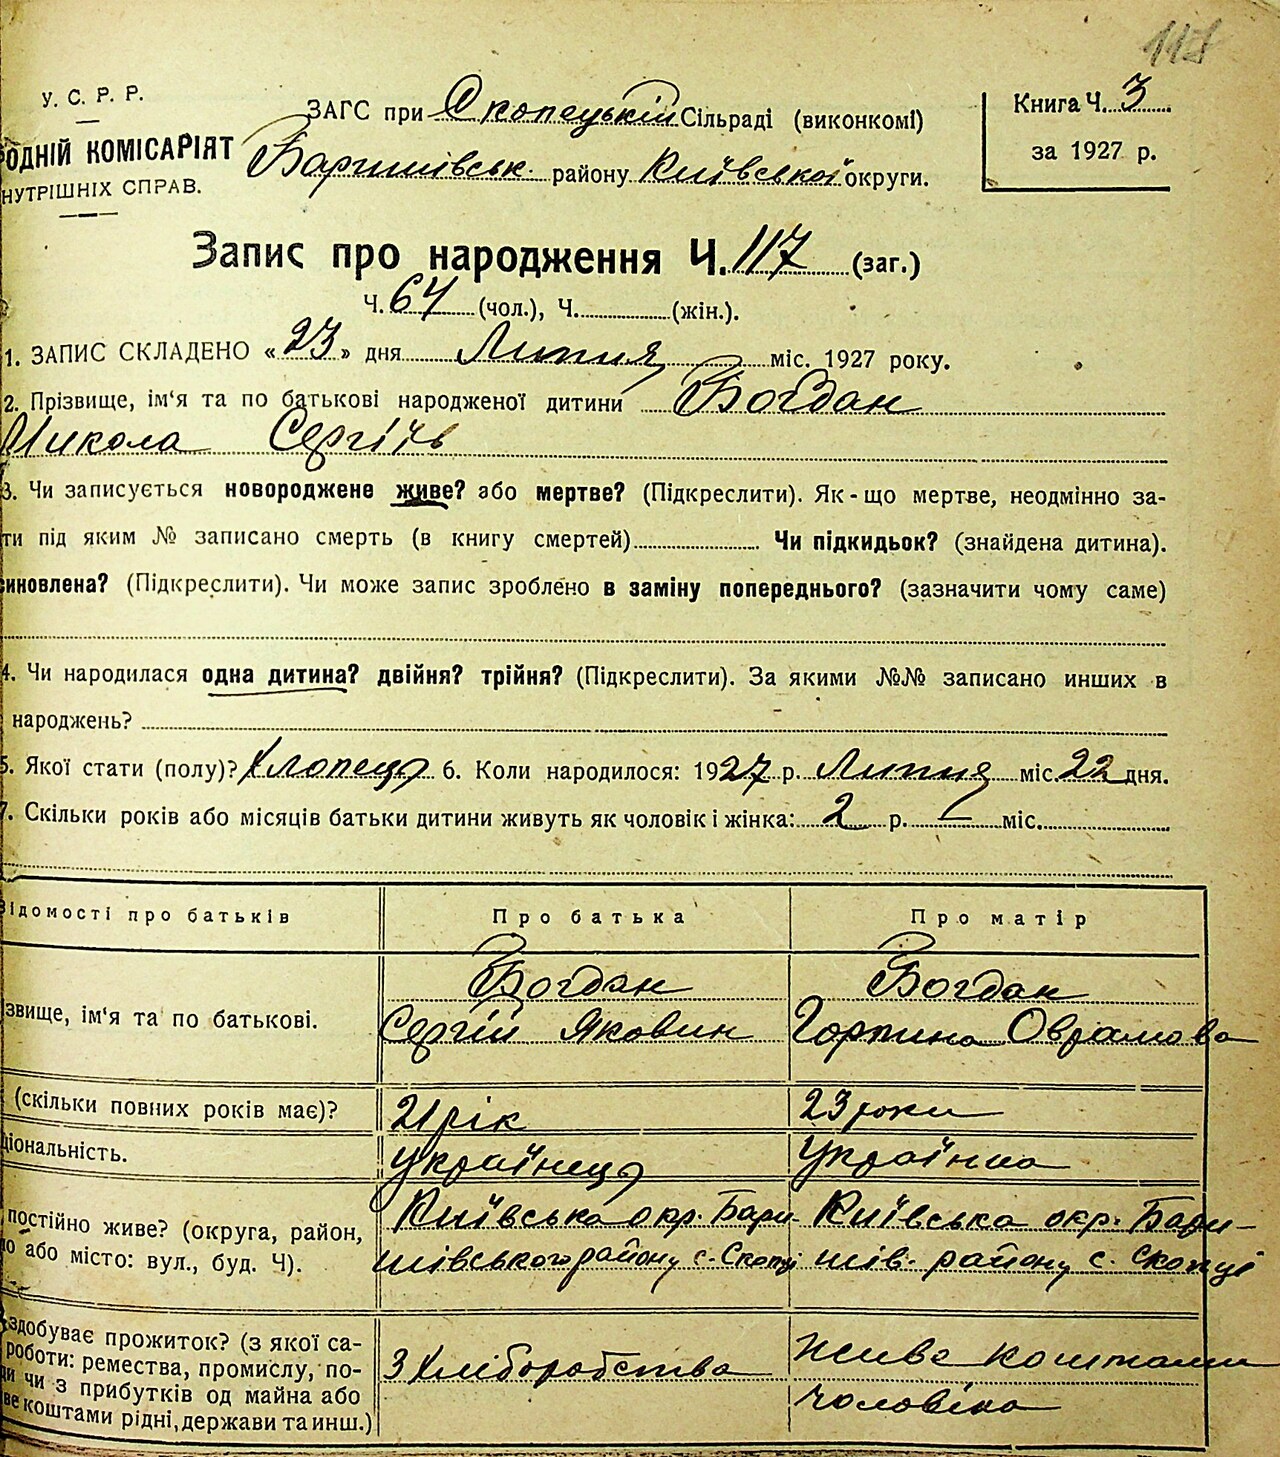 117
У. С. Р. Р.
ЗАГС при Скопецькій Сільраді (виконкомі)
Книга Ч. 3
ОДНІЙ КОМІСАРІЯТ
Баришівськ. району Київської округи.
за 1927 р.
НУТРІШНІХ СПРАВ.
Запис про народження Ч. 117 (заг.)
Ч. 64 (чол.), Ч. (жін.).
1. ЗАПИС СКЛАДЕНО «23» дня Липня міс. 1927 року.
2. Прізвище, ім'я та по батькові народженої дитини Богдан
Микола Сергіїв
3. Чи записується новороджене живе? або мертве? (Підкреслити). Як-що мертве, неодмінно за-
ти під яким № записано смерть (в книгу смертей) Чи підкидьок? (знайдена дитина).
иновлена? (Підкреслити). Чи може запис зроблено в заміну попереднього? (зазначити чому саме)
4. Чи народилася одна дитина? двійня? трійня? (Підкреслити). За якими №№ записано инших в
народжень?
5. Якої стати (полу)? Хлопець 6. Коли народилося: 1927 р. Липня міс. 22 дня.
7. Скільки років або місяців батьки дитини живуть як чоловік і жінка: 2 р. – міс.
ідомості про батьків Про батька Про матір
Богдан Богдан
звище, ім'я та по батькові. Сергій Яковин Горпина Оврамова
(скільки повних років має)? 21 рік 23 роки
ціональність. Українець Українка
постійно живе? (округа, район, Київська окр. Бари- Київська окр. Бари-
о або місто: вул., буд. Ч). шівського району с. Скопці шів. району с. Скопці
здобуває прожиток? (з якої са-
роботи: ремества, промислу, по- З хліборобства живе коштами
ди чи з прибутків од майна або чоловіка
ве коштами рідні, держави та инш.)